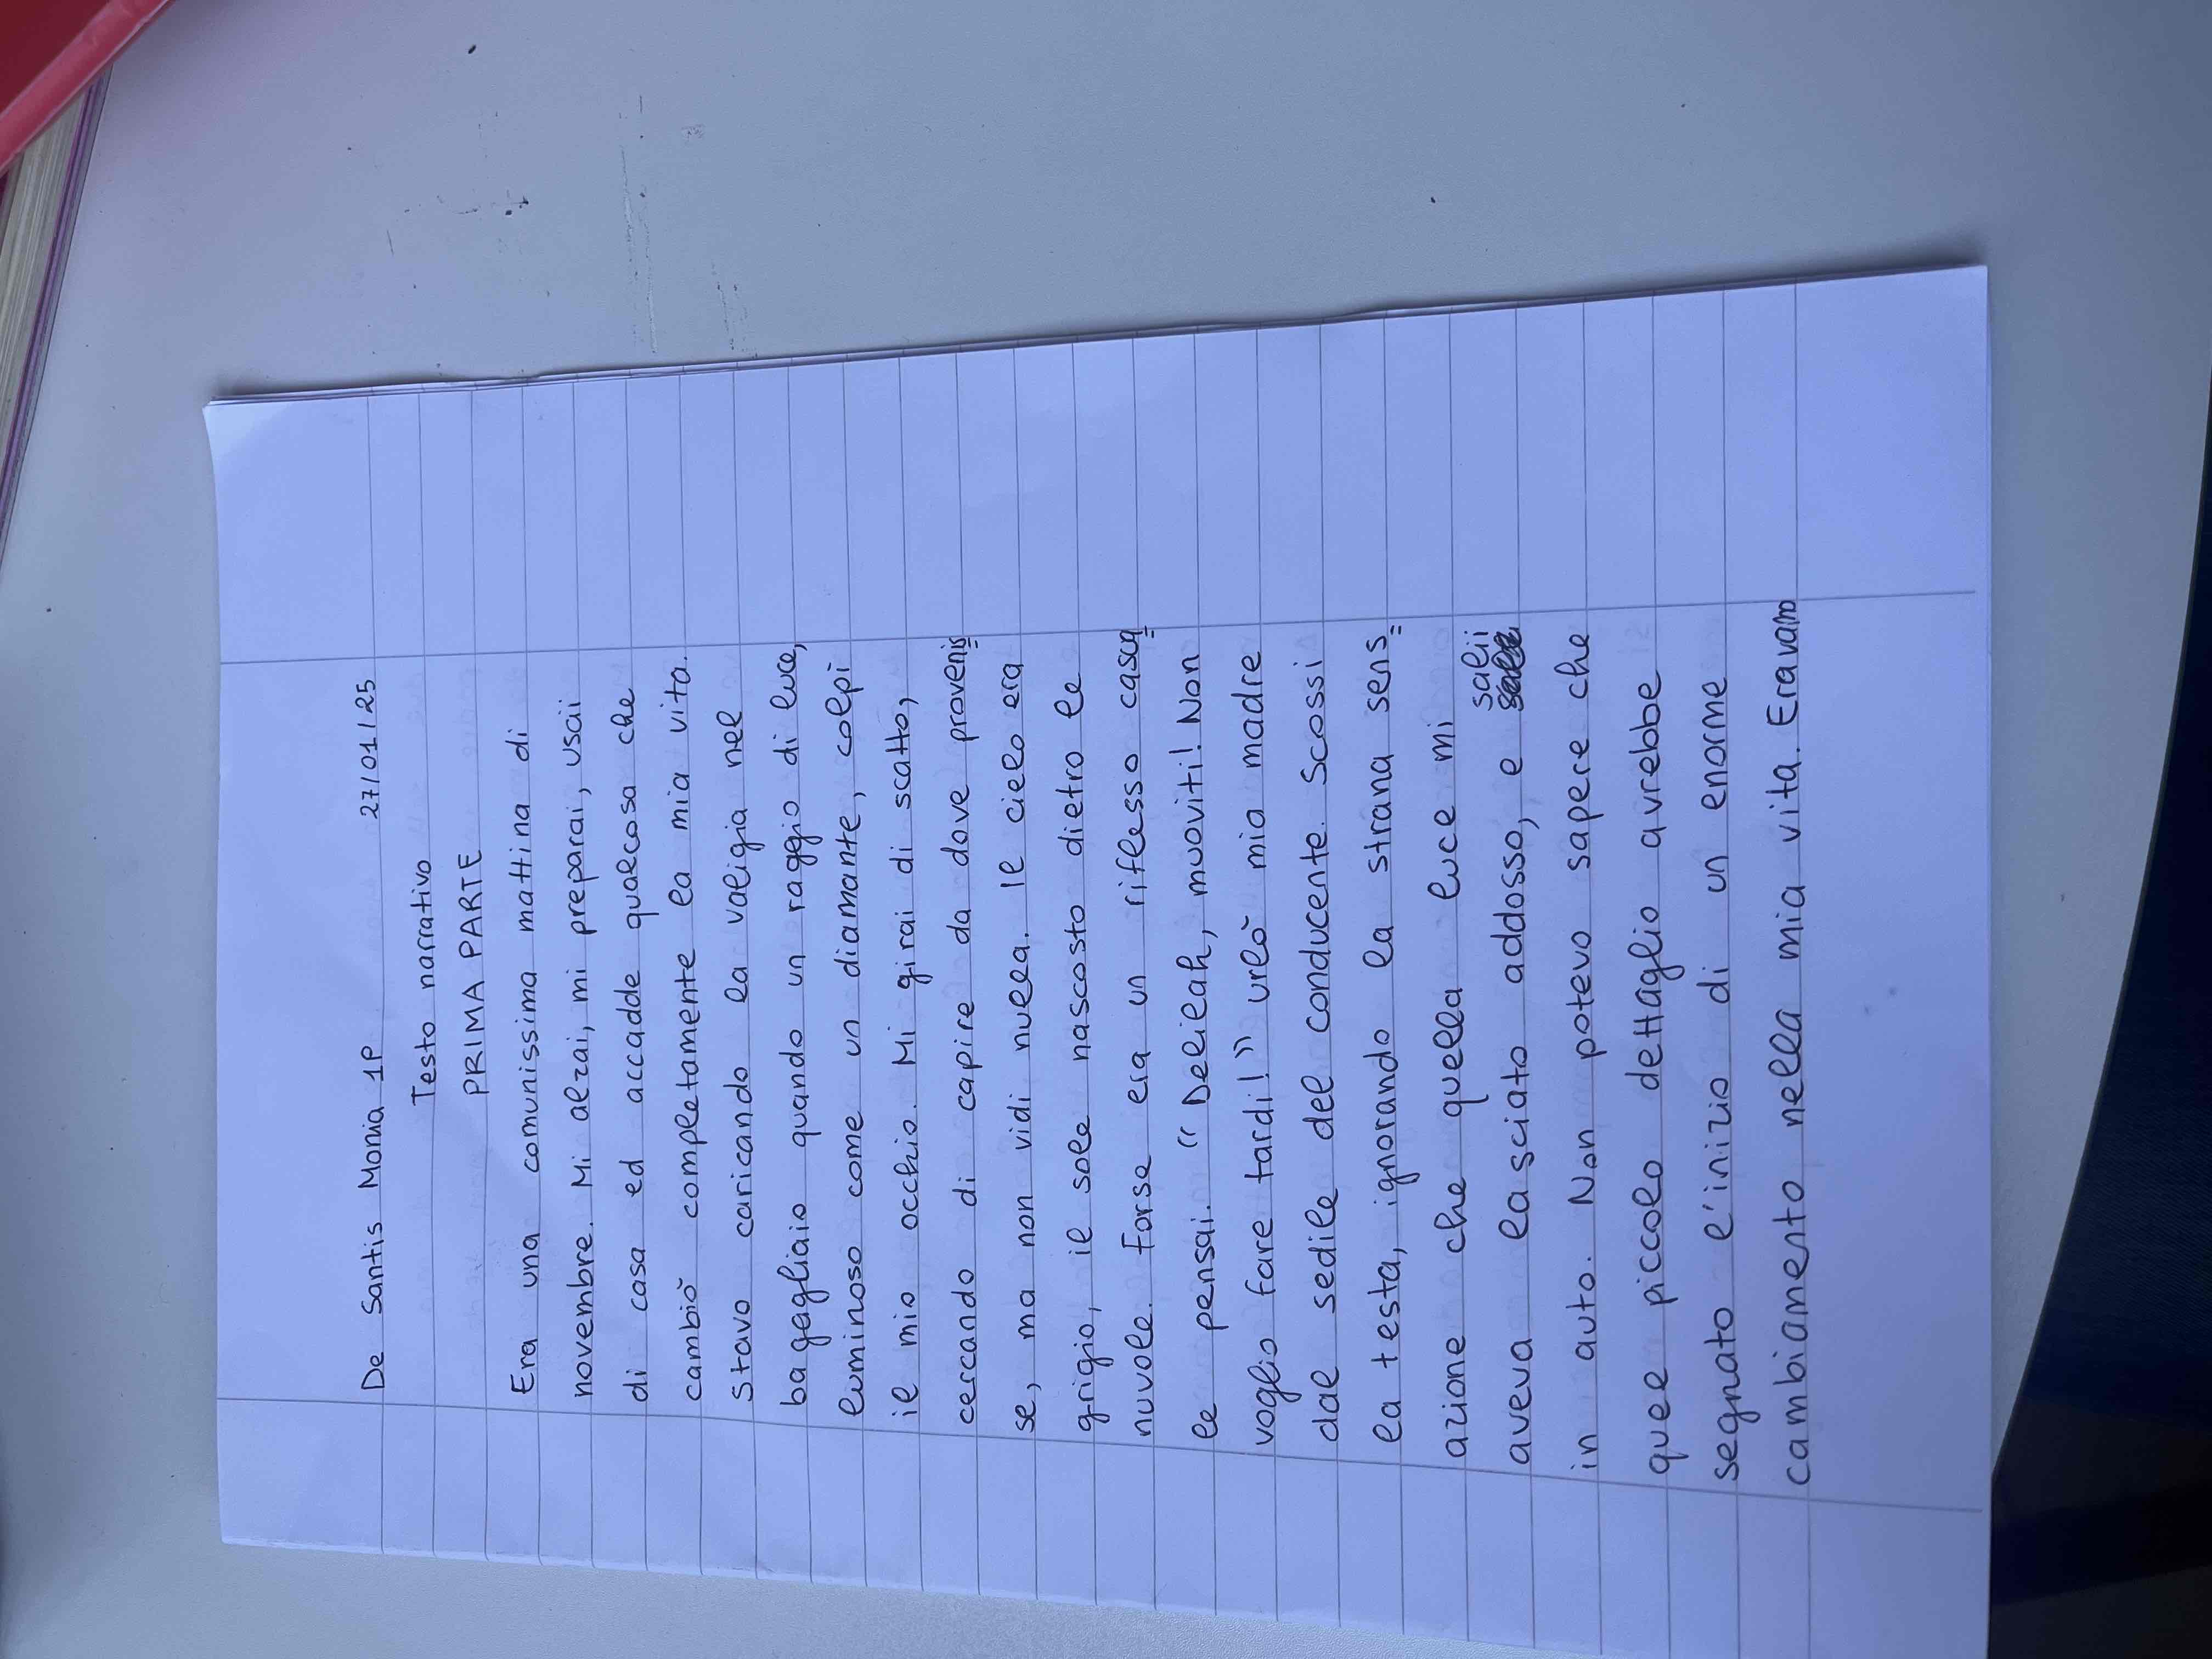 De Santis Monia 1P 27/01/25
Testo narrativo
PRIMA PARTE
Era una comunissima mattina di
novembre. Mi alzai, mi preparai, uscii
di casa ed accadde qualcosa che
cambiò completamente la mia vita.
Stavo caricando la valigia nel
bagagliaio quando un raggio di luce,
luminoso come un diamante, colpì
il mio occhio. Mi girai di scatto,
cercando di capire da dove provenis
se, ma non vidi nulla. Il cielo era
grigio, il sole nascosto dietro le
nuvole. Forse era un riflesso casua
le pensai. “Delilah, muoviti! Non
voglio fare tardi!” urlò mia madre
dal sedile del conducente. Scossi
la testa, ignorando la strana sens=
azione che quella luce mi
aveva lasciato addosso, e salii
in auto. Non potevo sapere che
quel piccolo dettaglio avrebbe
segnato l'inizio di un enorme
cambiamento nella mia vita. Eravamo